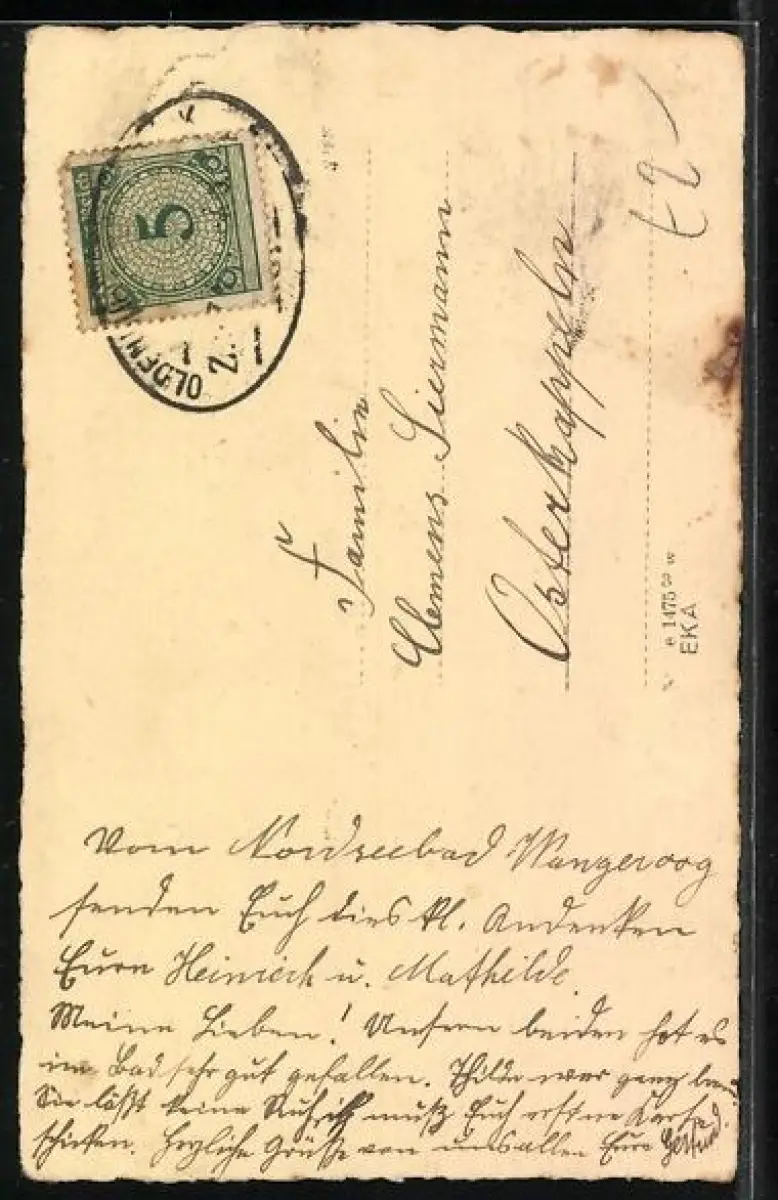 5
OLDENB
Familie
Clemens Siermann
Osterkappeln
e 1475 w
EKA
Vom Nordseebad Wangeroog
senden Euch dies kl. Andenken
Eure Heinrich u. Mathilde.
Meine Lieben! Unsern beiden hat es
im Bad sehr gut gefallen. Thilde war ganz
Sie läßt keine Ruh, ich muß Euch erst ne Karte
schicken. Herzliche Grüße von uns allen Eure